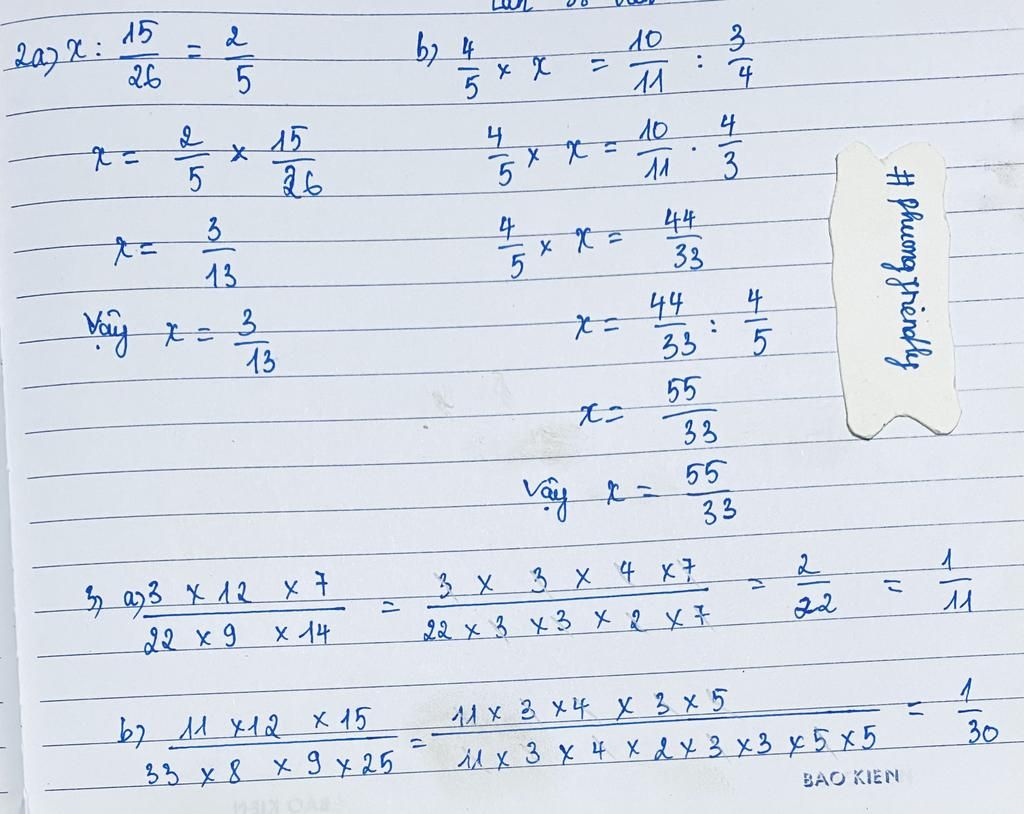 2a) x : 15/26 = 2/5
x = 2/5 × 15/26
x = 3/13
Vậy x = 3/13
b) 4/5 × x = 10/11 : 3/4
4/5 × x = 10/11 . 4/3
4/5 × x = 44/33
x = 44/33 : 4/5
x = 55/33
Vậy x = 55/33
#phuongfriendly
3) a) 3 × 12 × 7 / 22 × 9 × 14 = 3 × 3 × 4 × 7 / 22 × 3 × 3 × 2 × 7 = 2/22 = 1/11
b) 11 × 12 × 15 / 33 × 8 × 9 × 25 = 11 × 3 × 4 × 3 × 5 / 11 × 3 × 4 × 2 × 3 × 3 × 5 × 5 = 1/30
BAO KIEN